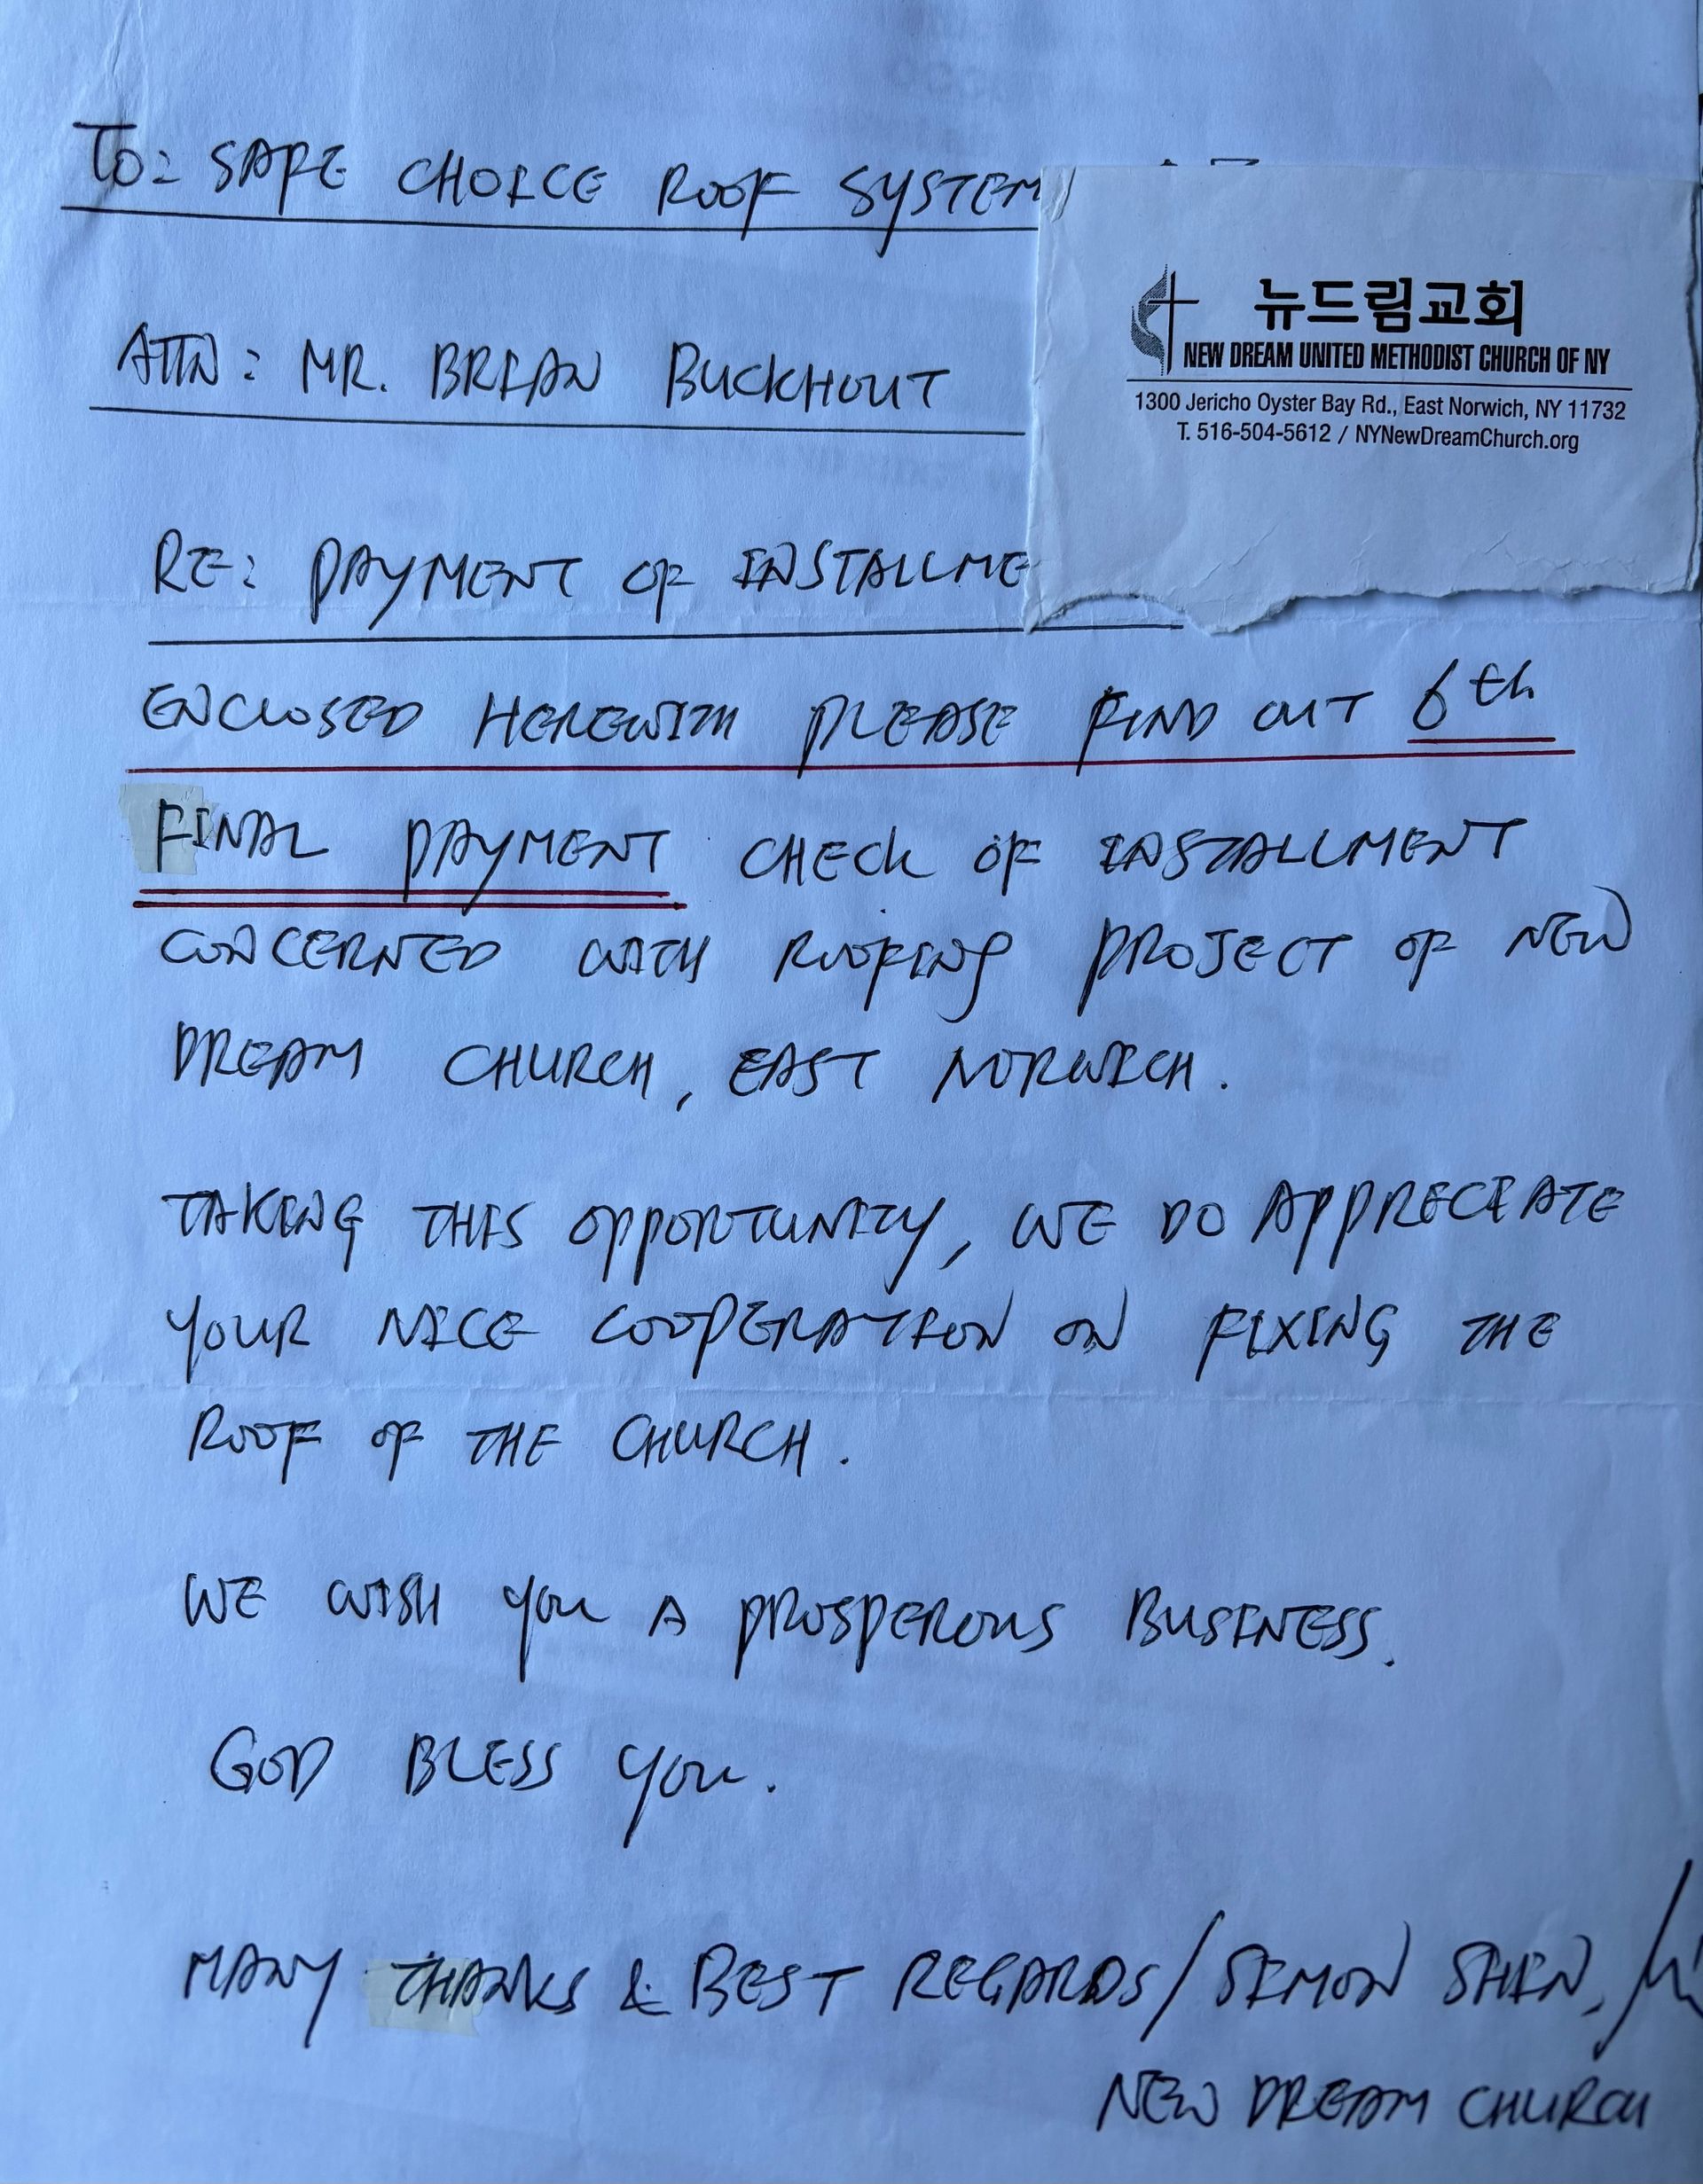 TO: SAFE CHOICE ROOF SYSTEM
뉴드림교회
NEW DREAM UNITED METHODIST CHURCH OF NY
1300 Jericho Oyster Bay Rd., East Norwich, NY 11732
T. 516-504-5612 / NYNewDreamChurch.org
ATTN: MR. BRIAN BUCKHOUT
RE: PAYMENT OF INSTALLME
ENCLOSED HEREWITH PLEASE FIND OUT 6th
FINAL PAYMENT CHECK OF INSTALLMENT
CONCERNED WITH ROOFING PROJECT OF NEW
DREAM CHURCH, EAST NORWICH.
TAKING THIS OPPORTUNITY, WE DO APPRECIATE
YOUR NICE COOPERATION ON FIXING THE
ROOF OF THE CHURCH.
WE WISH YOU A PROSPEROUS BUSINESS.
GOD BLESS YOU.
MANY THANKS & BEST REGARDS/SIMON SHIN,
NEW DREAM CHURCH